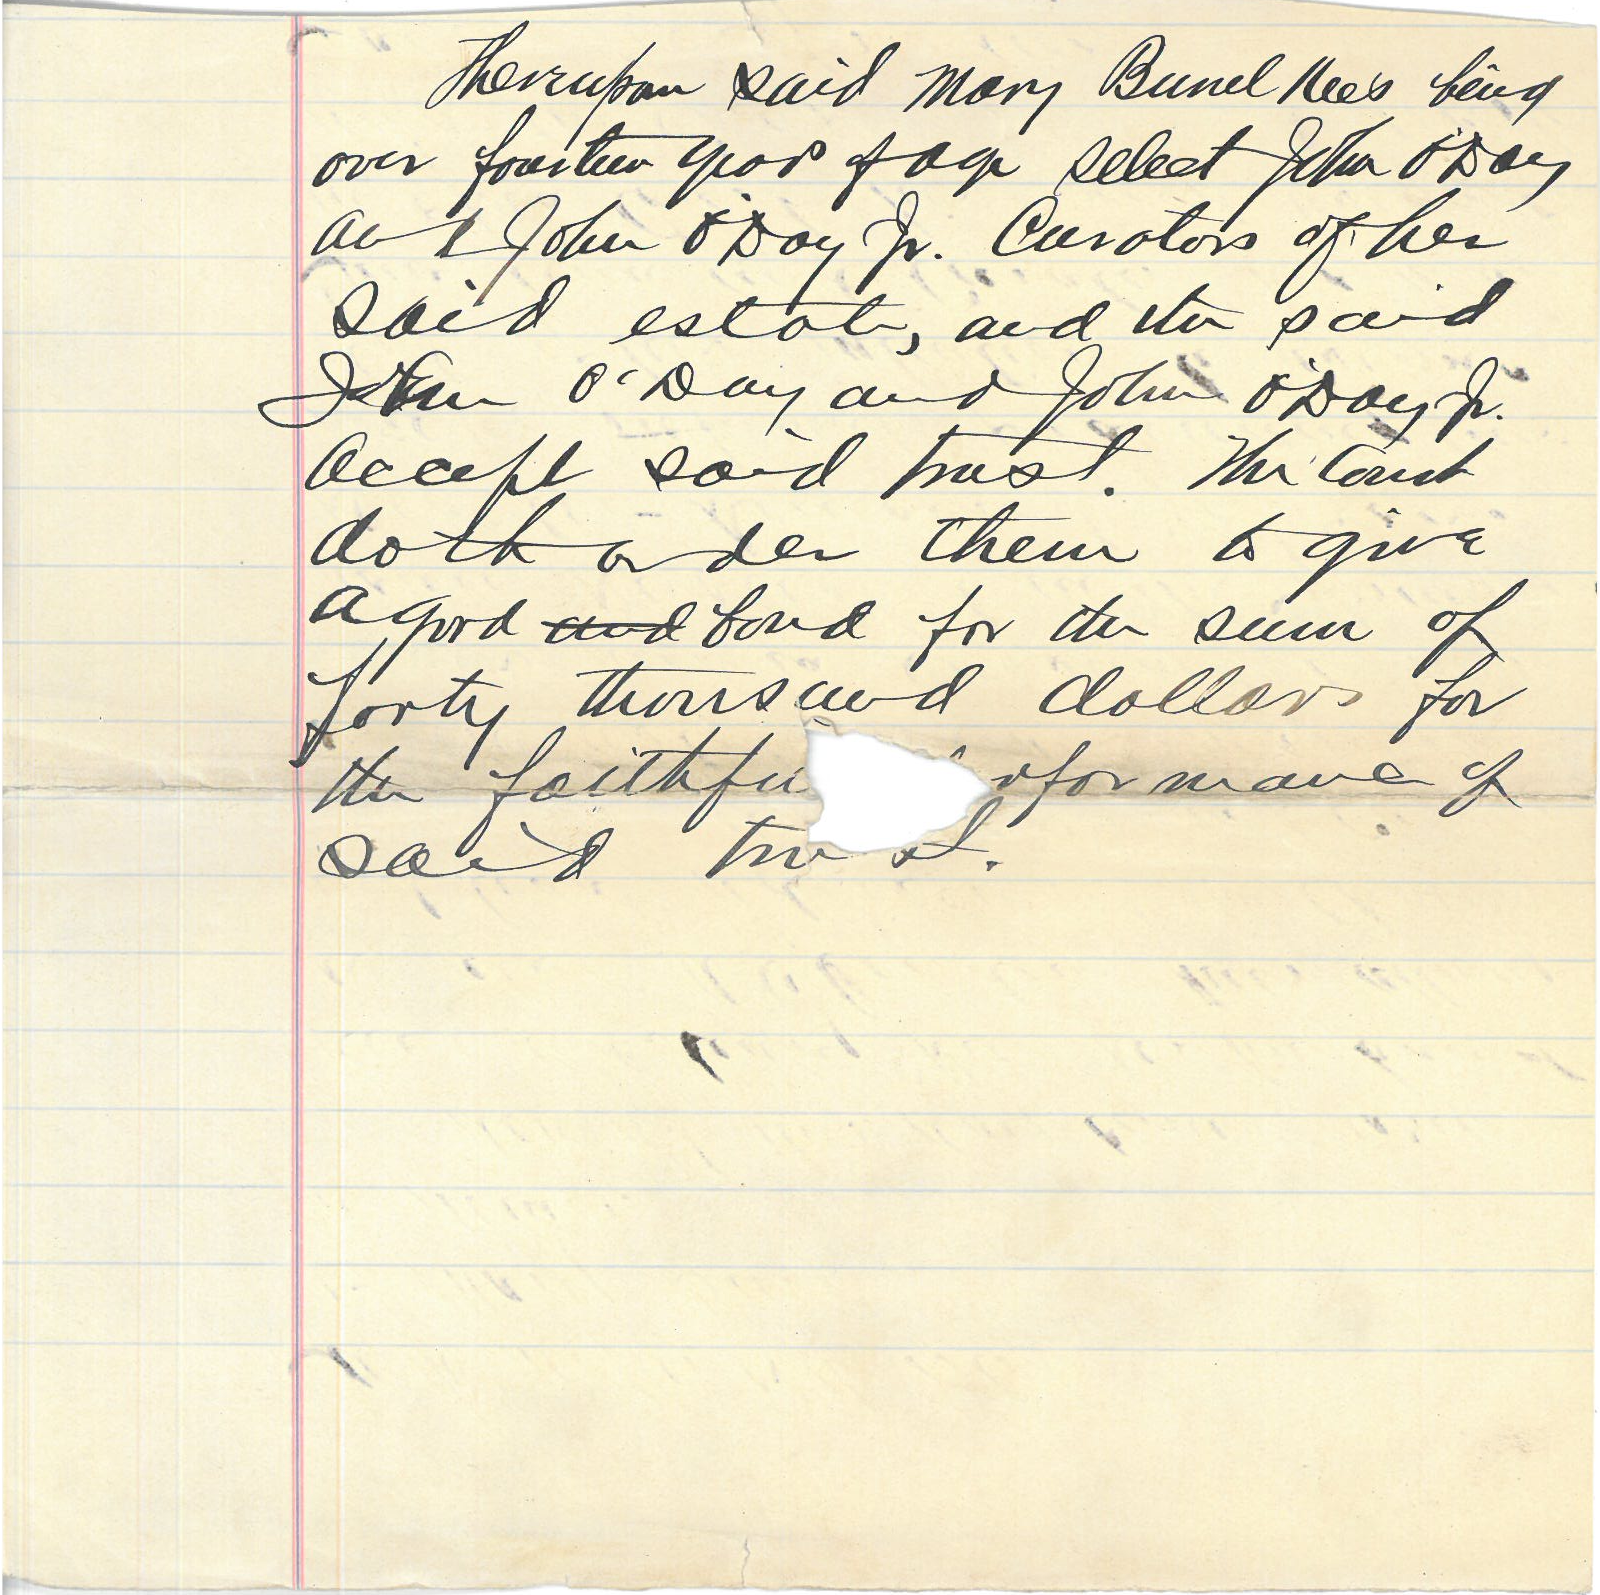 Thereupon said Mary Bunel Nees being
over fourteen years of age select John O'Day
and John O'Day Jr. Curators of her
said estate, and the said
John O'Day and John O'Day Jr.
accept said trust. The Court
doth order them to give
a good and bond for the sum of
forty thousand dollars for
the faithfu rformance of
said trust.